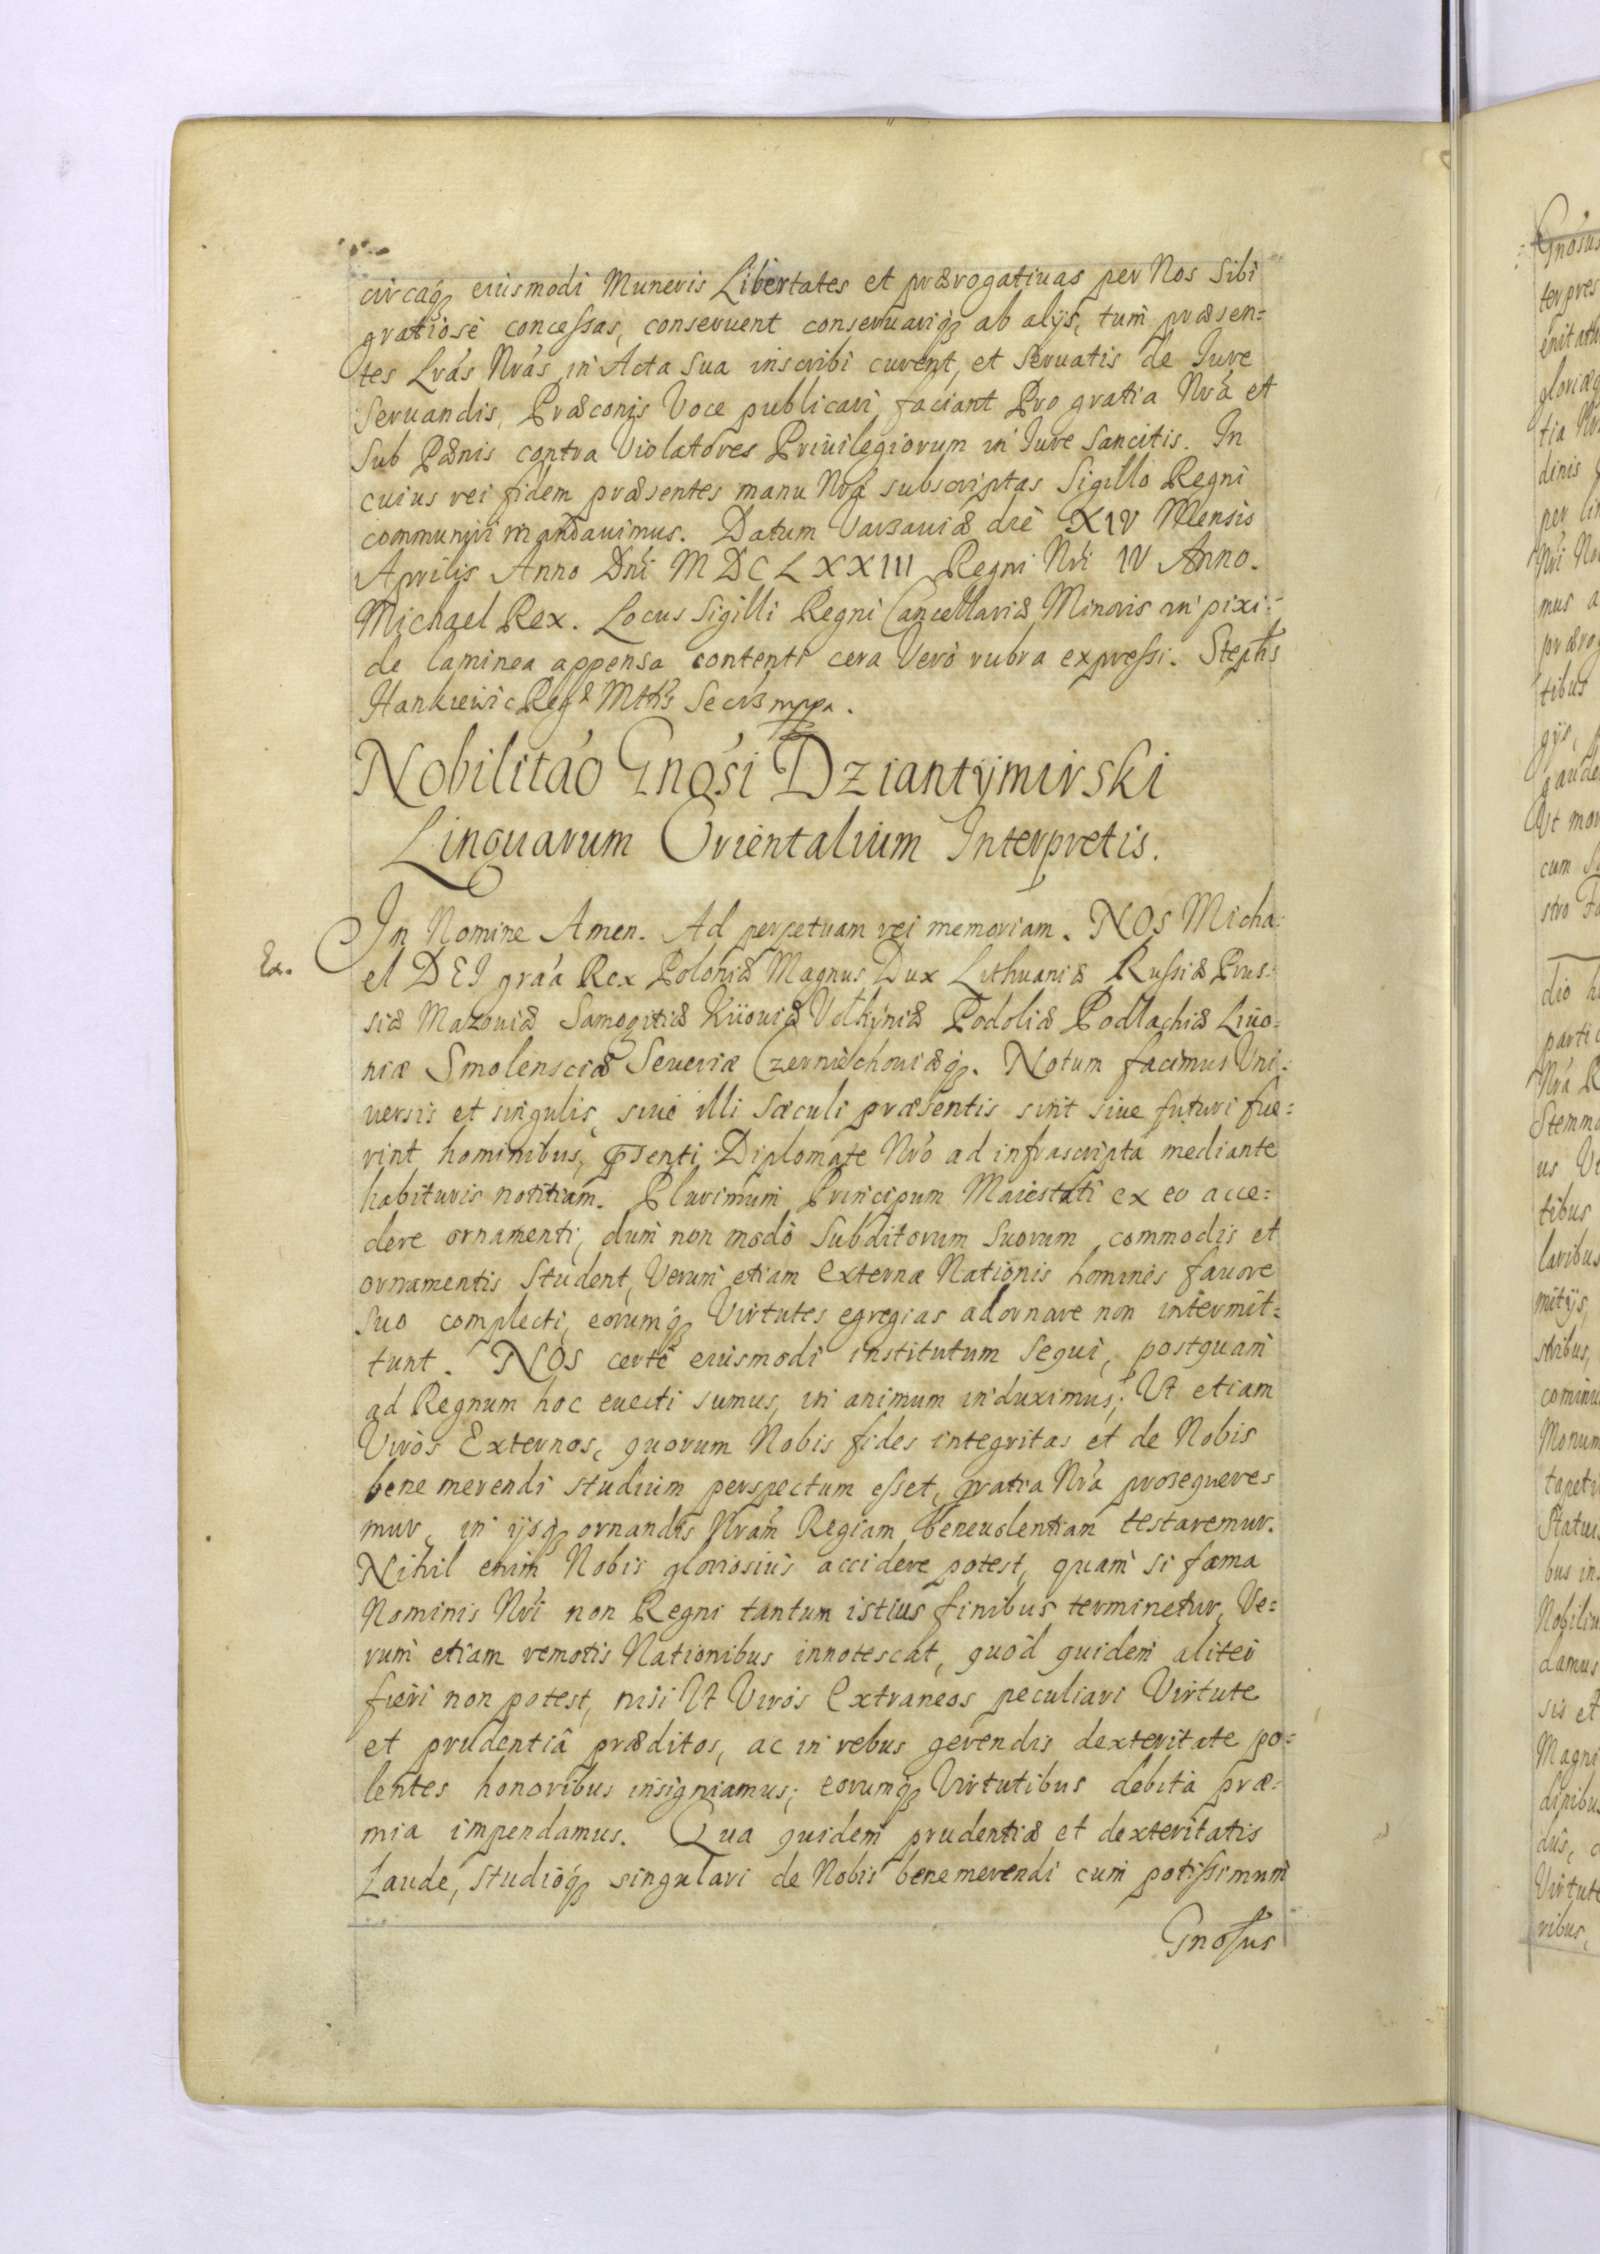 circaq; eiusmodi Muneris Libertates et prærogatiuas per Nos Sibi
gratiosè concessas, conseruent conseruariq; ab alijs, tum præsen=
tes Lrás Nrás in Acta Sua inscribi curent, et Seruatis de Iure
Seruandis, Præconis Voce publicari faciant Pro gratia Nrá et
Sub Pænis contra Violatores Priuilegiorum in Iure Sancitis. In
cuius rei fidem præsentes manu Nrá subscriptas Sigillo Regni
communiri mandauimus. Datum Varsauiæ die XIV Mensis
Aprilis Anno Dni MDCLXXIII Regni Nri IV Anno.
Michael Rex. Locus Sigilli Regni Cancellariæ Minoris in pixi=
de laminea appensa contenti cera Verò rubra expressi. Stephs
Hankiewic Regæ Mttis Secris mppa.
Nobilitáo Gnósi Dziantÿmirski
Linguarum Orientalium Interpretis.
In Nomine Amen. Ad perpetuam rei memoriam. NOS Micha=
Ex.
el DEI gráa Rex Poloniæ Magnus Dux Lithuaniæ Russiæ Prus=
siæ Mazouiæ Samogitiæ Kiiouiæ Volhÿniæ Podoliæ Podlachiæ Liuo=
niæ Smolensciæ Seueriæ Czerniechouiæq;. Notum facimus Vni=
uersis et singulis, siue illi Sæculi præsentis sint siue futuri fue=
rint hominibus, psenti Diplomate Nro ad infrascripta mediante
habituris notitiam. Plurimum Principum Maiestati ex eo acce=
dere ornamenti, dum non modò Subditorum Suorum commodis et
ornamentis Student, Verum etiam Externæ Nationis hominés fauore
Suo complecti, eorumq; Virtutes egregias adornare non intermit=
tunt. NOS certè eiusmodi institutum Sequi, postquam
ad Regnum hoc euecti sumus, in animum induximus; Vt etiam
Viros Externos, quorum Nobis fides integritas et de Nobis
bene merendi studium perspectum esset, gratia Nrá prosequere=
mur, in ijsq; ornandis Nram Regiam beneuolentiam testaremur.
Nihil enim Nobis gloriosius accidere potest, quam si fama
Nominis Nri non Regni tantum istius finibus terminetur, Ve=
rum etiam remotis Nationibus innotescat, quod quidem aliter
fieri non potest, nisi Vt Viros Extraneos peculiari Virtute
et prudentiâ præditos, ac in rebus gerendis dexteritate po=
lentes honoribus insigniamus; eorumq; Virtutibus debita præ=
mia impendamus. Qua quidem prudentiæ et dexteritatis
Laude, studioq; singulari de Nobis benemerendi cum potissimum
Gnosus